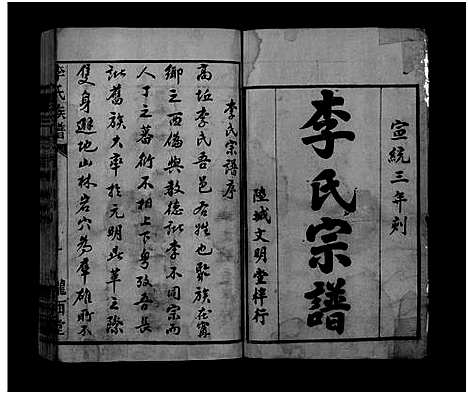 宣統三年刻
李氏宗譜
陸城文明堂梓行
李氏宗譜序
高坵李氏吾邑右姓也聚族在甯
鄉之西偽與敦德訟李不同宗而
人丁之蕃衍不相上下粵攷吾長
訟舊族大率於元明鼎革之際
隻身避地山林岩穴為羣雄所不
李氏族譜